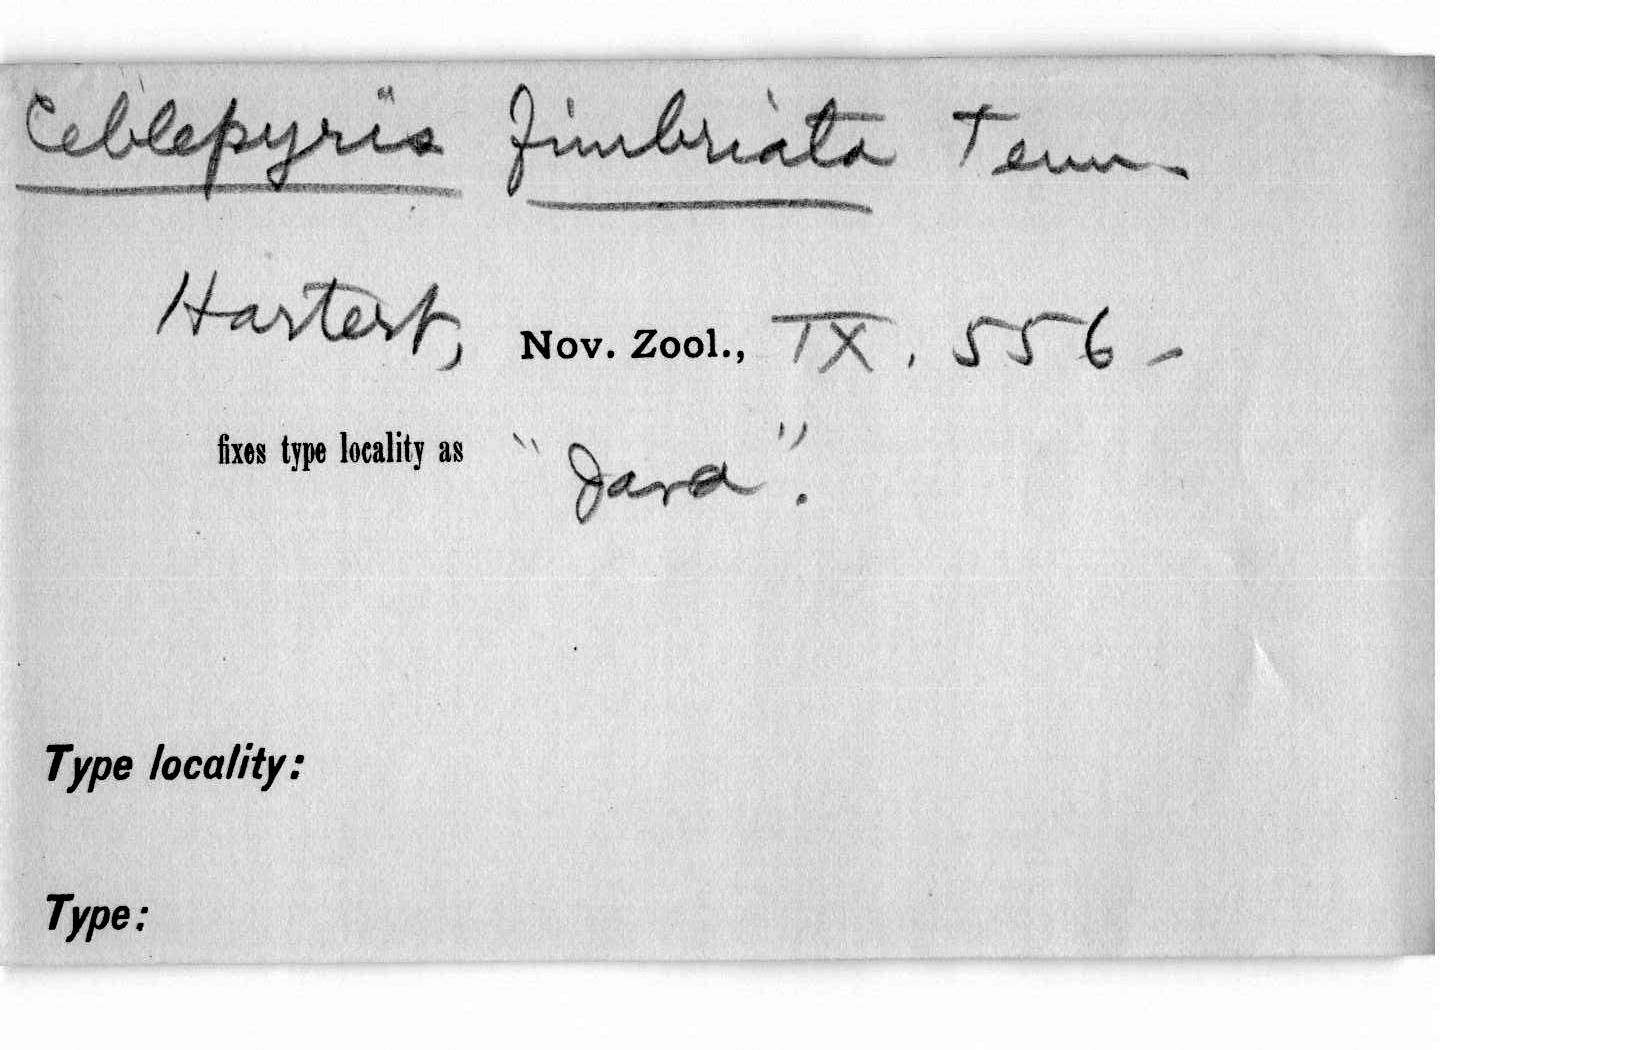 Ceblepyris fimbriata Temm
Hartert, Nov. Zool., IX, 556 -
fixes type locality as "Java".
Type locality:
Type: